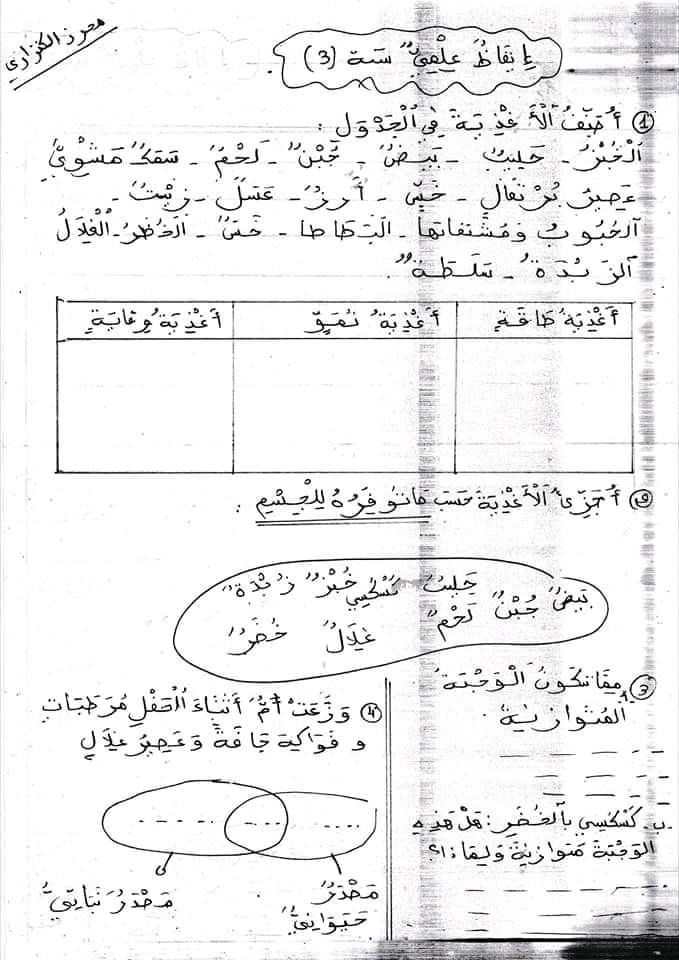 محرز الكنزاري
إِيقَاظٌ عِلْمِيٌّ سنة (3)
① أُصَنِّفُ الْأَغْذِيَةَ فِي الْجَدْوَلِ :
الْخُبْزُ - حَلِيبٌ - بَيْضٌ - جُبْنٌ - لَحْمٌ - سَمَكٌ مَشْوِيٌّ
عَصِيرُ بُرْتُقَالٍ - خَسٌّ - أَرُزٌّ - عَسَلٌ - زَيْتٌ -
الحُبُوبُ وَمُشْتَقَاتهَا - البَطَاطَا - خَسٌّ - الخُضَرُ - الْغِلَالُ
الزُّبْدَةُ - سَلَطَةٌ
أَغْذِيَةُ طَاقَةٍ
أَغْذِيَةُ نُمُوٍّ
أَغْذِيَةُ وِقَايَةٍ
② أُجَزِّئُ الْأَغْذِيَةَ حَسَبَ مَا تُوَفِّرُهُ لِلْجِسْمِ :
بَيْضٌ جُبْنٌ لَحْمٌ حَلِيبٌ كُسْكُسِي خُبْزٌ زُبْدَةٌ
غِلَالٌ خُضَرٌ
③ أ- مِمَّا تَتَكَوَّنُ الْوَجْبَةُ
الْمُتَوَازِنَةُ
ب- كُسْكُسِي بِالْخُضَرِ : هَلْ هَذِهِ
الوَجْبَةُ مُتَوَازِنَةٌ وَلِمَاذَا؟
④ وَزَّعَتْ أُمٌّ أَثْنَاءَ الْحَفْلِ مُرَطِّبَاتٍ
و فَوَاكِهَ جَافَّةً وَ عَصِيرَ غِلَالٍ
مَصْدَرٌ
حَيَوَانِيٌّ
مَصْدَرٌ نَبَاتِيٌّ